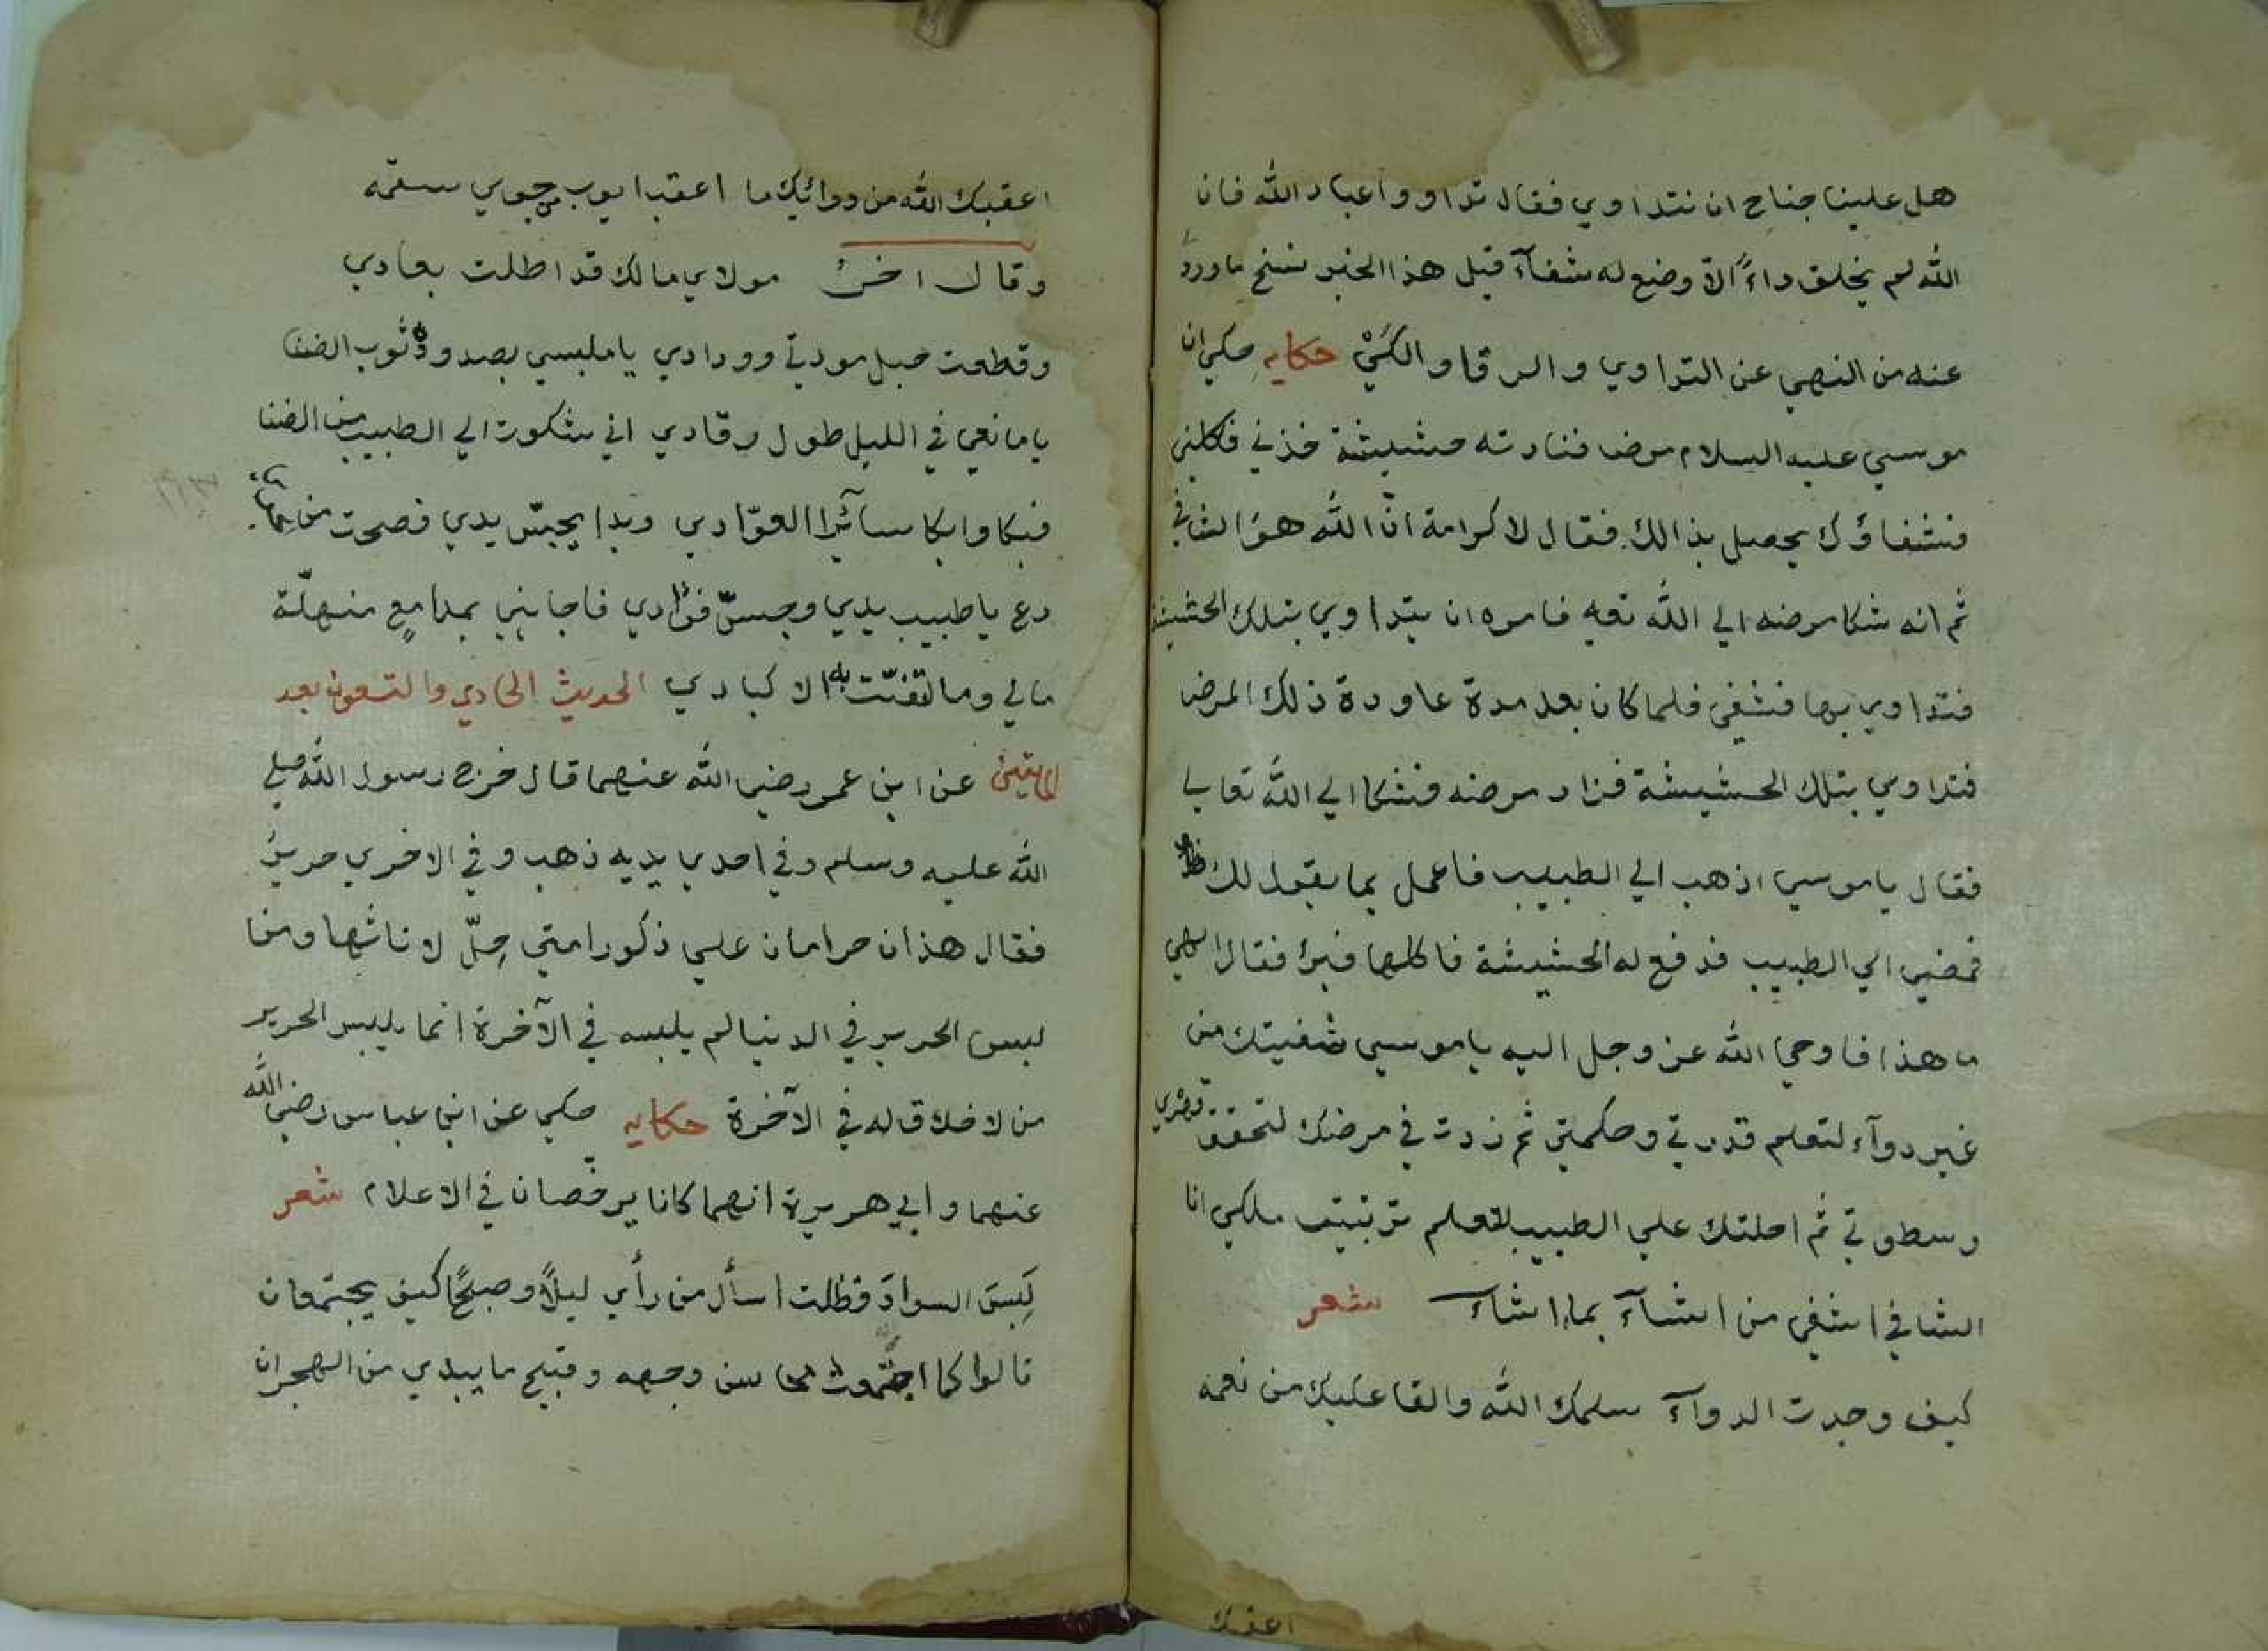 هل علينا جناح ان نتداوي فقال تداووا عباد الله فان
الله لم يخلق داءً الاّ وضع له شفآء قيل هذا الخبر نسخ ما ورد
عنه من النهي عن التداوي والرقا والكيّْ حكايه حكي ان
موسي عليه السلام مرض فنادته حشيشة خذني فكلني
فشفاؤك يحصل بذالك فقال لا كرامة انّ الله هو الشافي
ثم انه شكا مرضه الي الله تعه فامره ان يتداوي بتلك الحشيشة
فتداوي بها فشفي فلما كان بعد مدة عاودة ذلك المرض
فتداوي بتلك الحشيشة فزاد مرضه فشكا الي الله تعالي
فقال يا موسي اذهب الي الطبيب فاعمل بما يقول لك
فمضي الي الطبيب فدفع له الحشيشة فاكلها فبرئ فقال الهي
ما هذا فاوحي الله عز وجل اليه يا موسي شفيتك من
غير دوآء لتعلم قدرتي وحكمتي ثم زدت في مرضك لتحقق قهري
وسطوتي ثم احلتك علي الطبيب لتعلم ترتيب ملكي انا
الشافي اشفي من اشآء بما اشآء شعر
كيف وجدت الدوآء سلمك الله والقا عليك من نعمه
اعقبك
اعقبك الله من دوائك ما اعقب ايوب من جوي سقمه
وقال اخر مولاي مالك قد اطلت بعادي
وقطعت حبل مودتي وودادي يا ملبسي بصدوده ثوب الضنا
يا مانعي في الليل طول رقادي اني شكوت الي الطبيب من الضنا
فبكا وابكا سائر العوّادي وبدا يجسّ يدي فصحت من
دع يا طبيب يدي وجسّ فؤادي فاجابني بمدامع منهلّة
مالي وما لتفتّت به الاكبادي الحديث الحادي والتسعون بعد
المايتين عن ابن عمر رضي الله عنهما قال خرج رسول الله صلي
الله عليه وسلم وفي احدي يديه ذهب وفي الاخري حرير
فقال هذان حرامان علي ذكور امتي حِلّ لاناثها ومن
لبس الحرير في الدنيا لم يلبسه في الآخرة انما يلبس الحرير
من لا خلاق له في الآخرة حكايه حكي عن ابن عباس رضي الله
عنهما وابي هريرة انهما كانا يرخّصان في الاعلام شعر
لَبِسَ السوادَ فظلت اسأل من رأي ليلاً وصبحًا كيف يجتمعان
قالوا كما اجتمعت محاسن وجهه وقبيح ما يبدي من الهجران